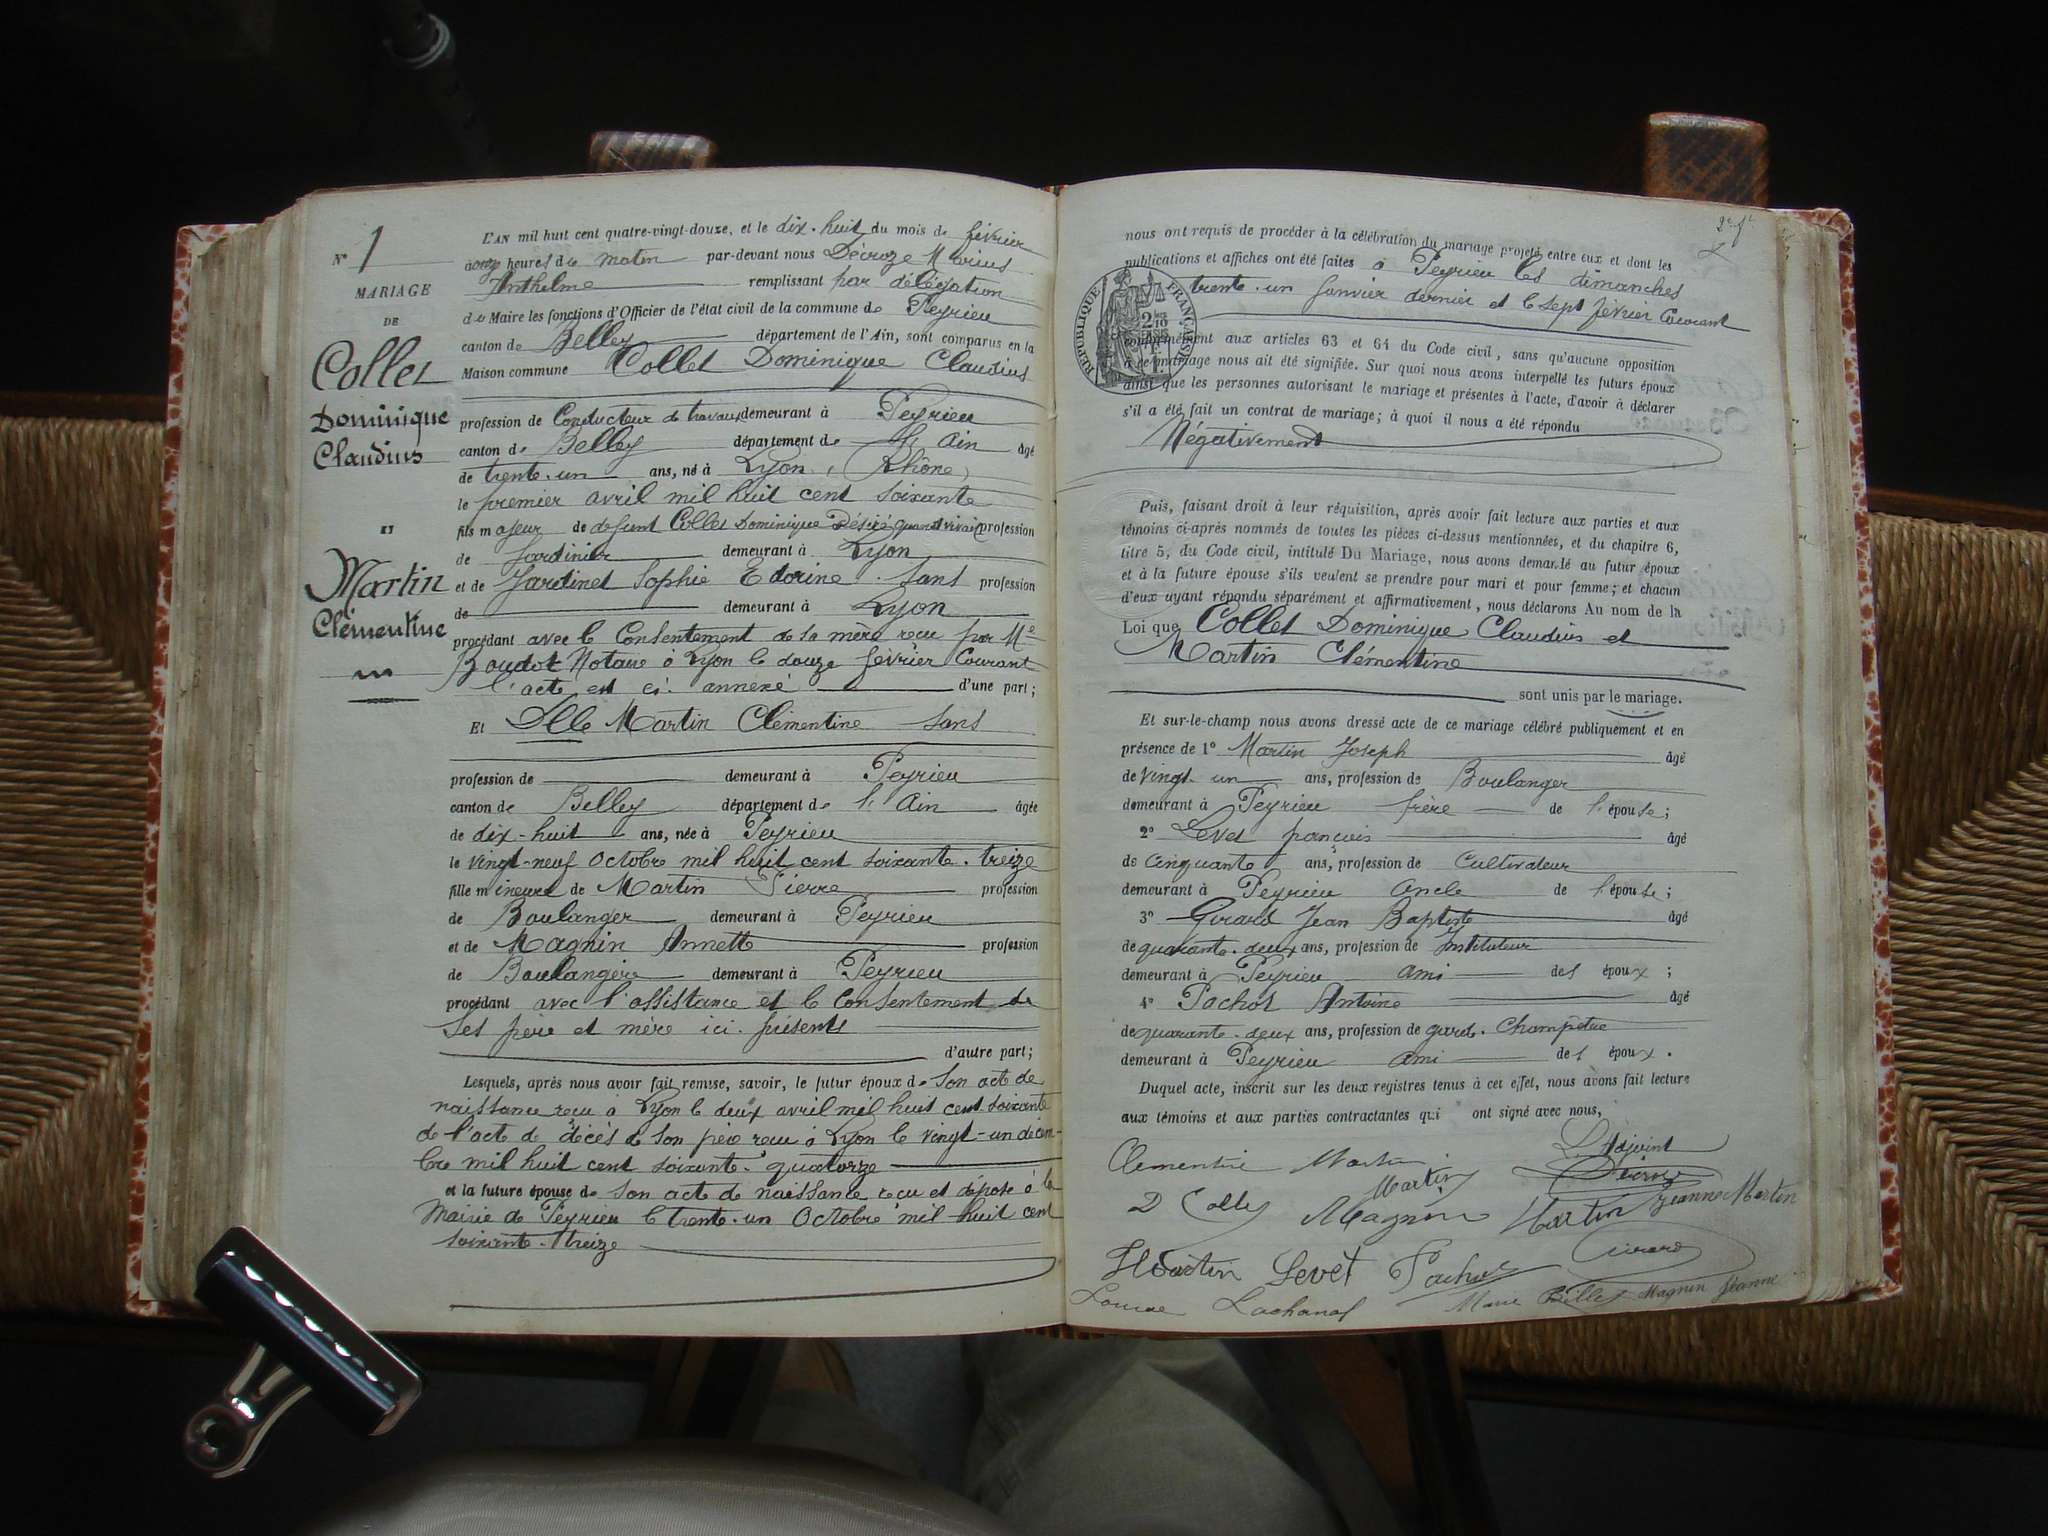 N° 1
MARIAGE
DE
Collet
Dominique
Claudius
ET
Martin
Clémentine
L'AN mil huit cent quatre-vingt-douze, et le dix-huit du mois de février
à onze heures du matin par-devant nous Décroze Marius
Anthelme remplissant par délégation
de Maire les fonctions d'Officier de l'état civil de la commune de Peyrieu
canton de Belley département de l'Ain, sont comparus en la
Maison commune Collet Dominique Claudius
profession de Conducteur de travaux demeurant à Peyrieu
canton de Belley département de l'Ain âgé
de trente-un ans, né à Lyon, (Rhône)
le premier avril mil huit cent soixante
fils majeur de défunt Collet Dominique Désiré quand vivait profession
de Jardinier demeurant à Lyon
et de Jardinet Sophie Edorine sans profession
de demeurant à Lyon
procédant avec le Consentement de sa mère reçu par Me
Boudot Notaire à Lyon le douze février Courant
l'acte est ci-annexé d'une part;
Et Dlle Martin Clémentine sans
profession de demeurant à Peyrieu
canton de Belley département de l'Ain âgée
de dix-huit ans, née à Peyrieu
le vingt-neuf Octobre mil huit cent soixante-treize
fille mineure de Martin Pierre profession
de Boulanger demeurant à Peyrieu
et de Magnin Annette profession
de Boulangère demeurant à Peyrieu
procédant avec l'assistance et le Consentement de
ses père et mère ici présents
d'autre part;
Lesquels, après nous avoir fait remise, savoir, le futur époux de son acte de
naissance reçu à Lyon le deux avril mil huit cent soixante
de l'acte de décès de son père reçu à Lyon le vingt-un décem-
bre mil huit cent soixante-quatorze
et la future épouse de son acte de naissance reçu et déposé à la
Mairie de Peyrieu le trente-un Octobre mil huit cent
soixante-treize
2e ft
nous ont requis de procéder à la célébration du mariage projeté entre eux et dont les
publications et affiches ont été faites à Peyrieu les dimanches
trente-un Janvier dernier et le sept février Courant
RÉPUBLIQUE FRANÇAISE
conformément aux articles 63 et 64 du Code civil, sans qu'aucune opposition
à ce mariage nous ait été signifiée. Sur quoi nous avons interpellé les futurs époux
ainsi que les personnes autorisant le mariage et présentes à l'acte, d'avoir à déclarer
s'il a été fait un contrat de mariage; à quoi il nous a été répondu
Négativement
Puis, faisant droit à leur réquisition, après avoir fait lecture aux parties et aux
témoins ci-après nommés de toutes les pièces ci-dessus mentionnées, et du chapitre 6,
titre 5, du Code civil, intitulé Du Mariage, nous avons demandé au futur époux
et à la future épouse s'ils veulent se prendre pour mari et pour femme; et chacun
d'eux ayant répondu séparément et affirmativement, nous déclarons Au nom de la
Loi que Collet Dominique Claudius et
Martin Clémentine
sont unis par le mariage.
Et sur-le-champ nous avons dressé acte de ce mariage célébré publiquement et en
présence de 1° Martin Joseph âgé
de vingt-un ans, profession de Boulanger
demeurant à Peyrieu frère de l'épouse;
2° Levet françois âgé
de Cinquante ans, profession de Cultivateur
demeurant à Peyrieu Oncle de l'épouse;
3° Girard Jean Baptiste âgé
de quarante-deux ans, profession de Instituteur
demeurant à Peyrieu ami des époux;
4° Pochot Antoine âgé
de quarante-deux ans, profession de garde-Champêtre
demeurant à Peyrieu ami des époux.
Duquel acte, inscrit sur les deux registres tenus à cet effet, nous avons fait lecture
aux témoins et aux parties contractantes qui ont signé avec nous,
L'Adjoint
Clementine Martin Décroze
D Collet Martin Magnin Martin Jeanne Martin
Martin Levet Pochot Girard
Louise Lachanal Marie Billet Magnin Jeanne